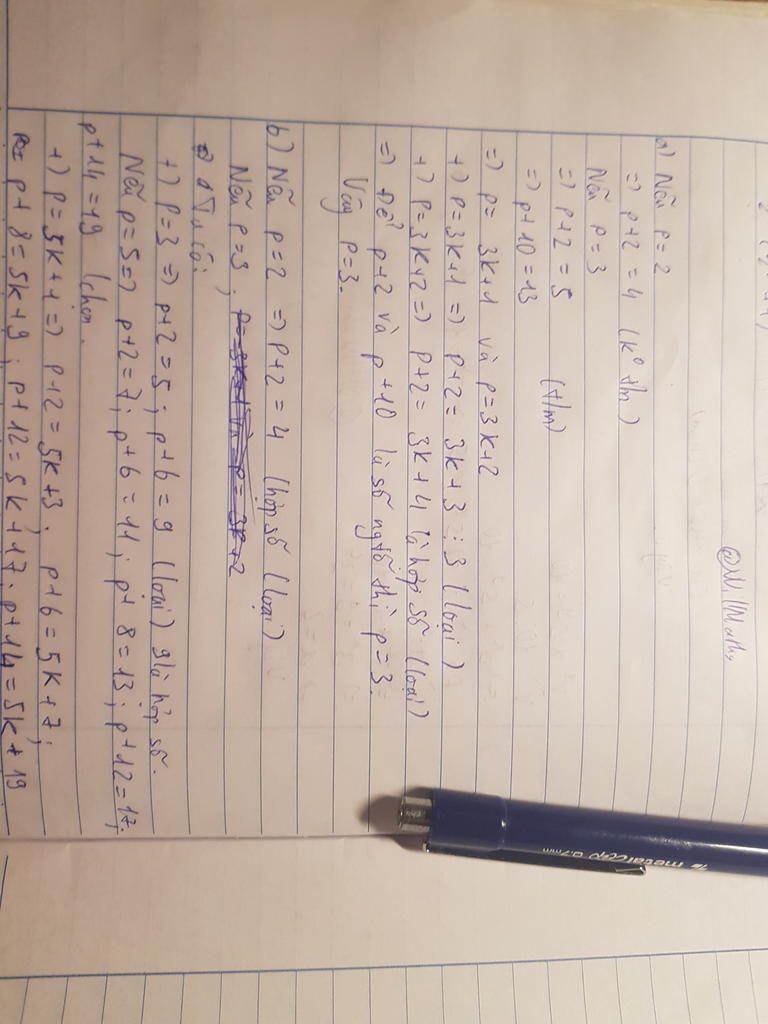 @WillMaths
a) Nếu p=2
=) p+2 = 4 (k° t/m)
Nếu p=3
=) p+2 = 5
(t/m)
=) p+10 = 13
=) p= 3k+1 và p=3k+2
+) p=3k+1 =) p+2 = 3k+3 ⋮ 3 (loại)
+) p=3k+2 =) p+2 = 3k+4 là hợp số (loại)
=) Để p+2 và p+10 là số ngtố thì p=3.
Vậy p=3.
b) Nếu p=2 =) p+2 = 4 (hợp số (loại)
Nếu p=3; p=3k+1 và p=3k+2
có:
+) p=3 =) p+2 = 5; p+6 = 9 (loại) 9 là hợp số.
Nếu p=5 =) p+2 = 7; p+6 = 11; p+8 = 13; p+12 = 17;
p+14 = 19 (chọn.
+) p=5k+1 =) p+2 = 5k+3; p+6 = 5k+7;
p+8 = 5k+9; p+12 = 5k+17; p+14 = 5k+19
metalClip 0.7mm